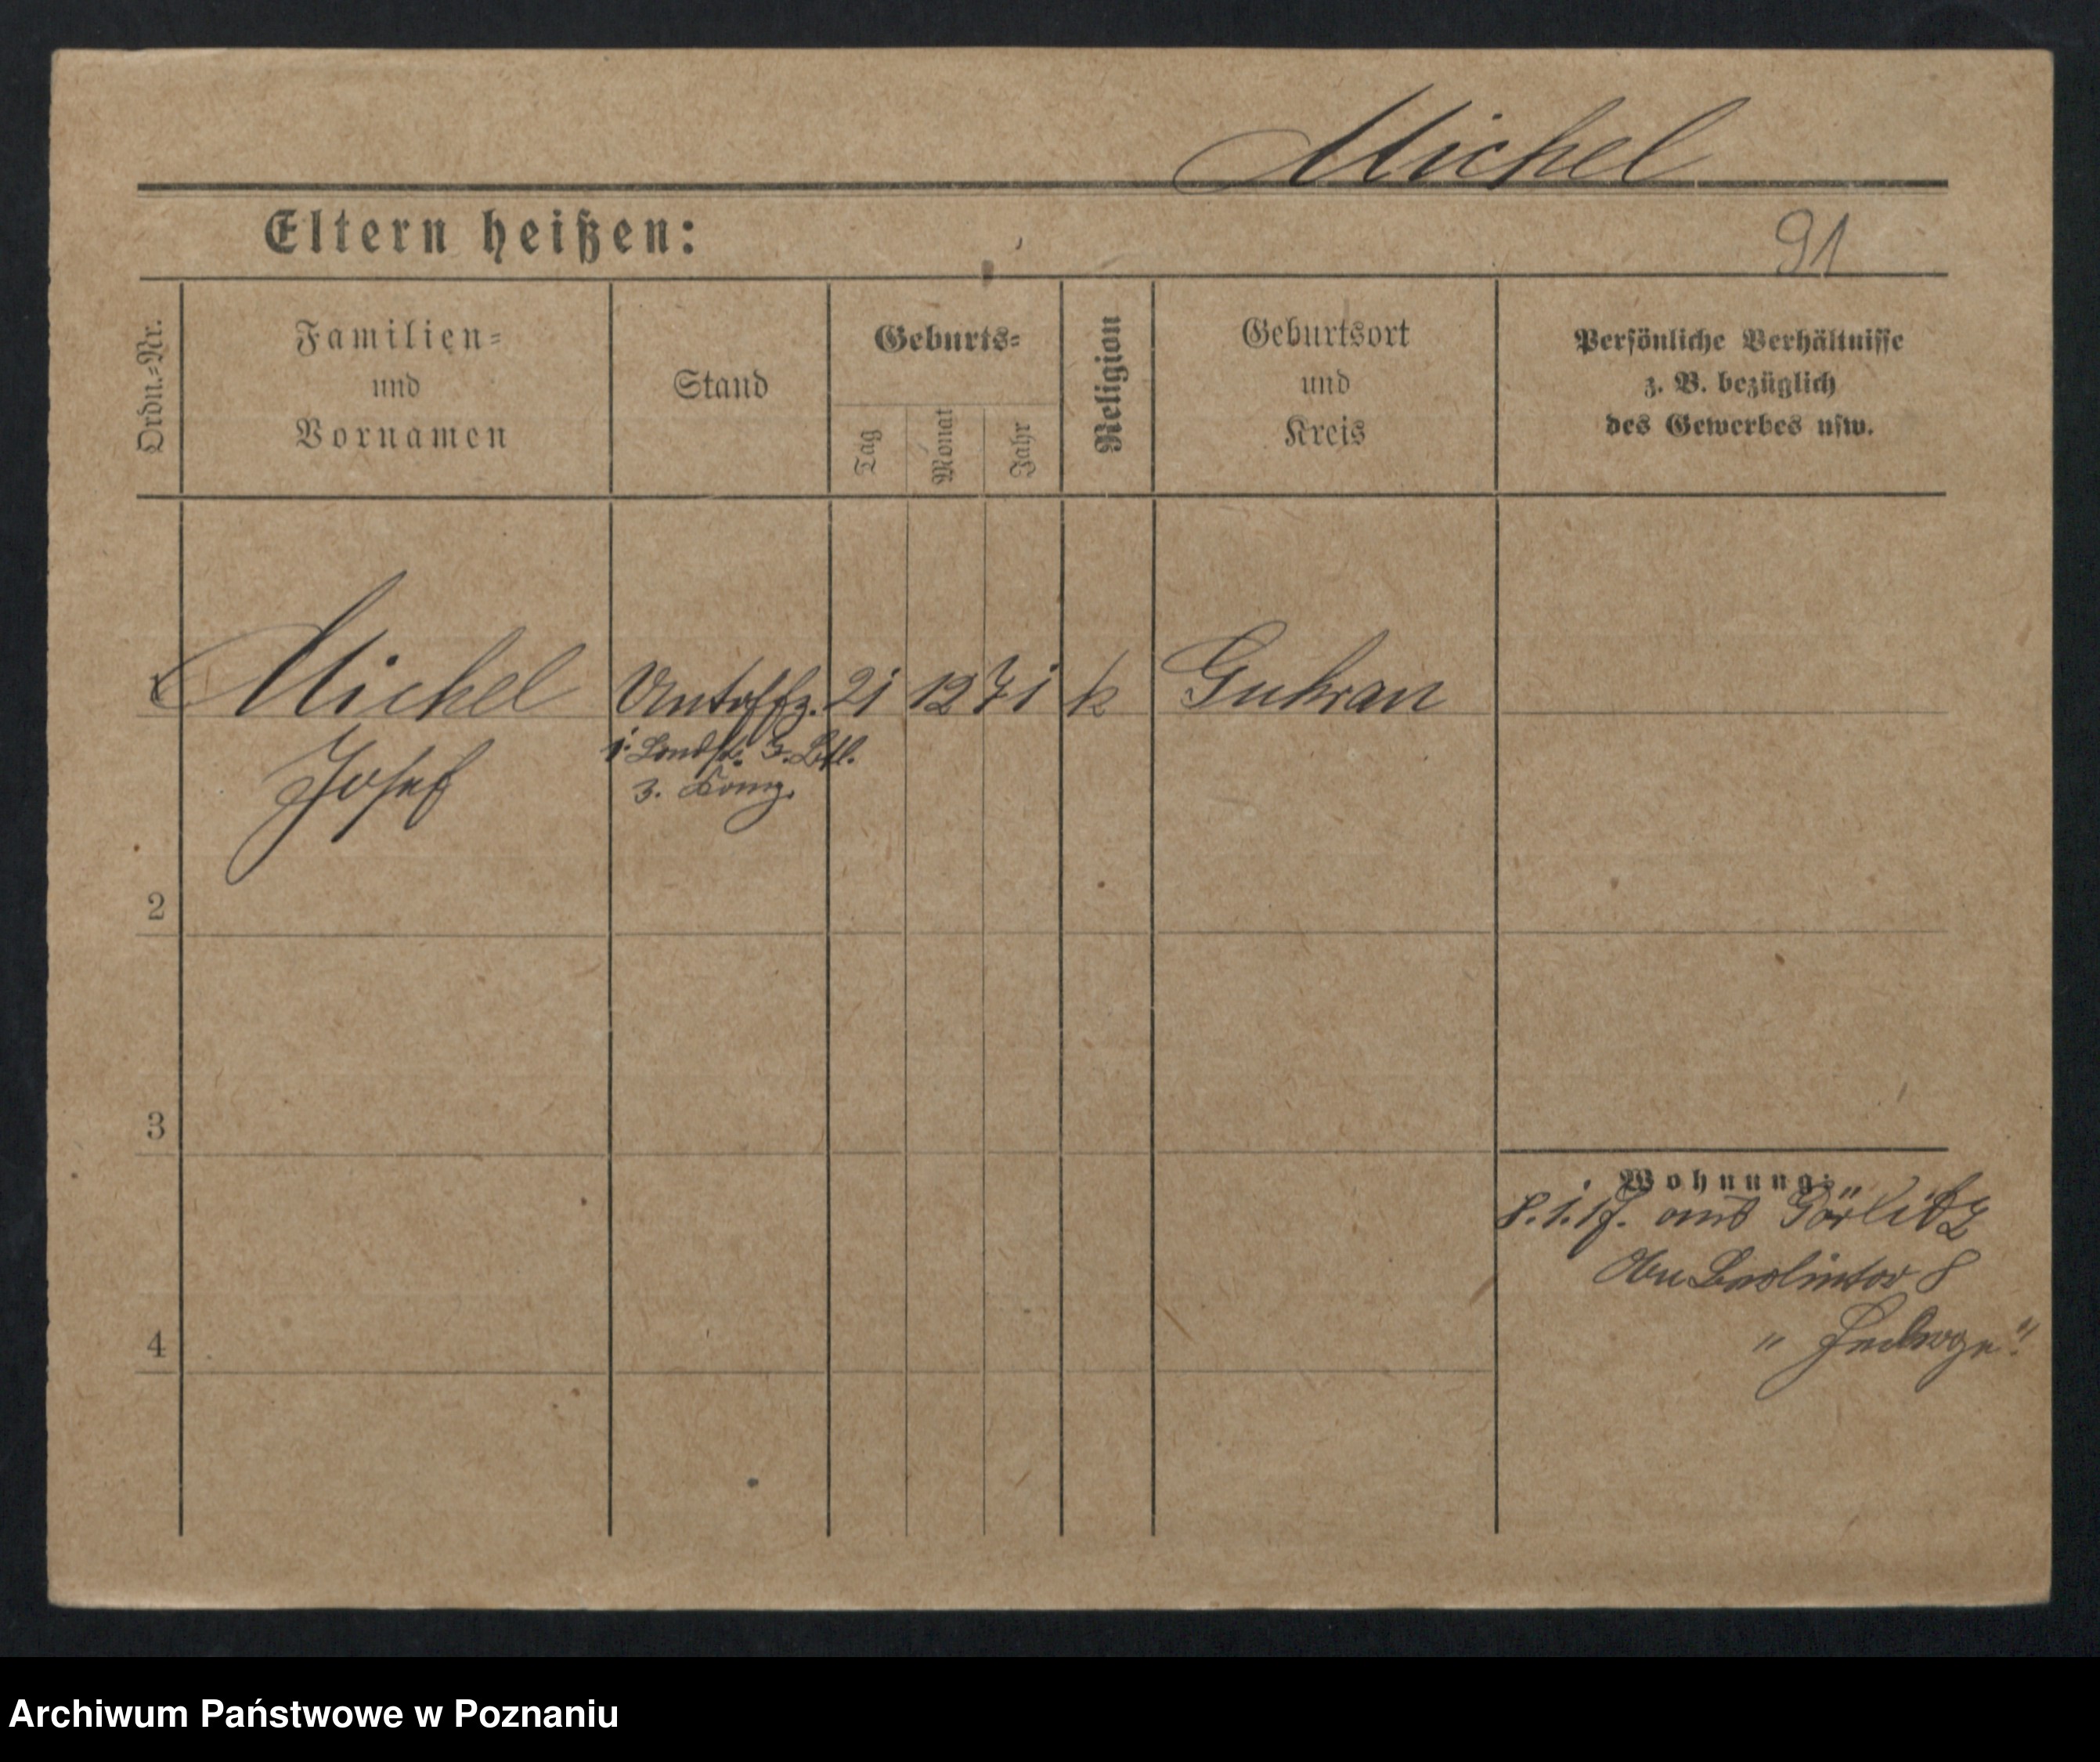 Michel
Eltern heißen:
91
Ordn.-Nr.
Familien-
und
Vornamen
Stand
Geburts-
Tag
Monat
Jahr
Religion
Geburtsort
und
Kreis
Persönliche Verhältnisse
z. B. bezüglich
des Gewerbes usw.
1
Michel
Untoffz.
21
12
71
k
Guhrau
Josef
3. Komp.
2
3
4
Wohnung:
8.1.17. aus Görlitz
Berlintor 8
Archiwum Państwowe w Poznaniu